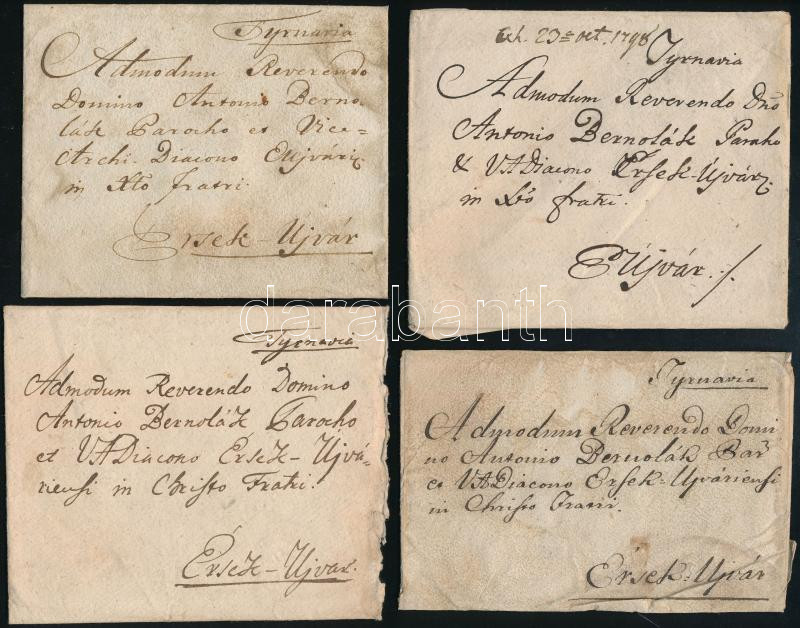 Tyrnavia
Admodum Reverendo
Domino Antonio Berno-
lák Parocho et Vice-
Archi-Diacono EUjvári
in Xto Fratri.
Érsek-Ujvár
Exh. 23a oct. 1798
Tyrnavia
Admodum Reverendo Dno
Antonio Bernolák Paroho
& VADiacono Érsek-Újvár
in Xto fratri.
EÚjvár ./.
Tyrnavia
Admodum Reverendo Domino
Antonio Bernolák Parocho
et VADiacono Ersek-Ujvá-
riensi in Christo Fratri.
Érsek-Ujvar.
Tyrnavia
Admodum Reverendo Domi
no Antonio Bernolák Par
et VADiacono Ersek-Ujváriensi
in Christo Fratri.
Érsek-Ujvár
darabanth